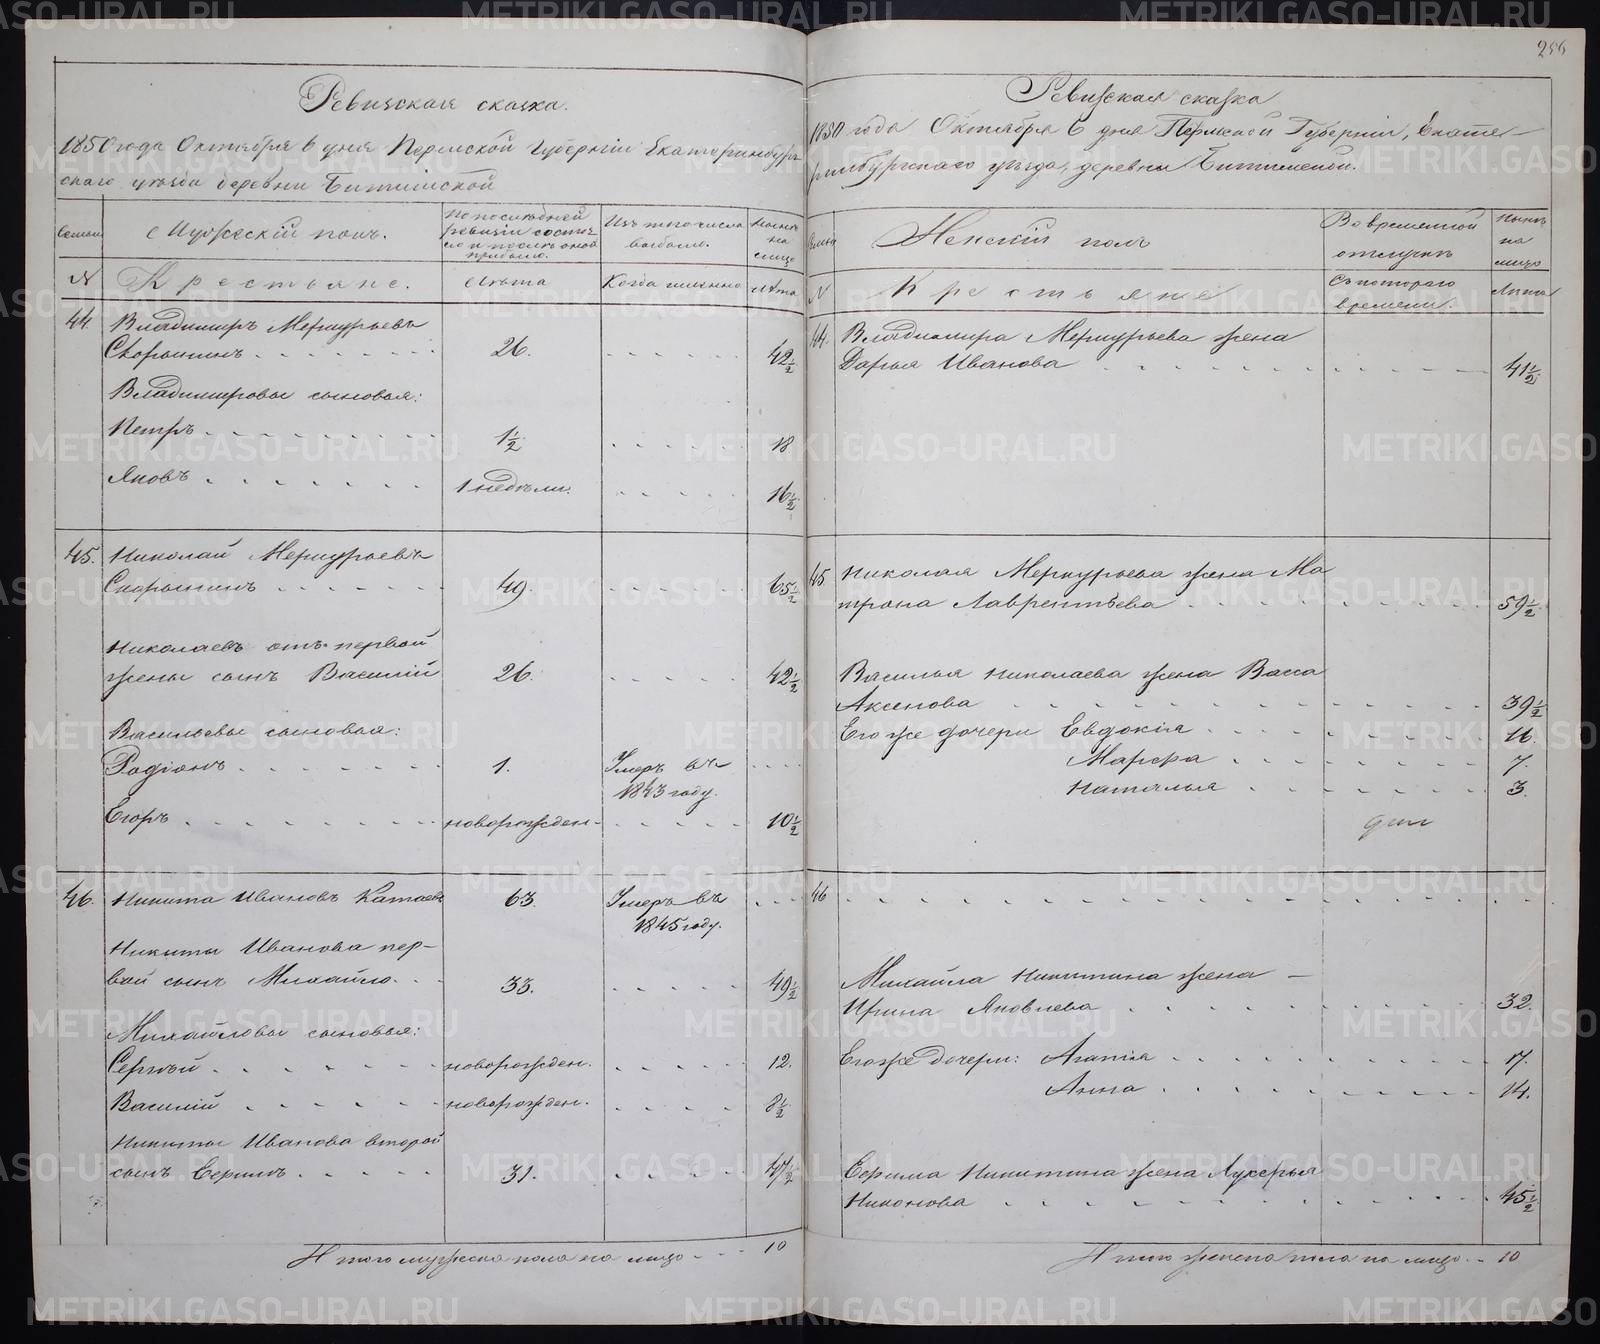 256
Ревизская сказка.
1850 года Октября 6 дня Пермской Губернии Екатеринбург-
скаго уезда деревни Битимской
Семьи
Мужескій полъ.
По последней ревизіи состояло и после оной прибыло.
Изъ того числа выбыло.
Ныне на лицо
N
Крестьяне.
Лета
Когда именно
Лета
44. Владимиръ Меркурьевъ
Скорынинъ . . . 26. . . . 42½
Владимировы сыновья:
Петръ . . . 1½ . . . 18
Яковъ . . . 1 недели . . . 16½
45. Николай Меркурьевъ
Скорынинъ . . . 49. . . . 65½
Николаевъ отъ первой
жены сынъ Василій 26. . . . 42½
Васильевы сыновья:
Родіонъ . . . 1. Умеръ въ . . .
1843 году.
Егоръ . . . новорожден. . . . 10½
46. Никита Ивановъ Катаевъ 63. Умеръ въ . . .
1845 году.
Никиты Иванова пер-
вой сынъ Михайло . . 33. . . . 49½
Михайловы сыновья:
Сергей . . . новорожден. . . . 12.
Василій . . . новорожден. . . . 8½
Никиты Иванова второй
сынъ Ефимъ . . . 31. . . . 47½
Итого мужеска пола на лицо . . . 10
Ревизская сказка
1850 года Октября 6 дня Пермской Губерніи, Екате-
ринбургскаго уезда, деревни Битименки.
Семьи
Женскій полъ
Во временной отлучке
Ныне на лицо
N
Крестьяне
Съ котораго времени.
Лета
44. Владимира Меркурьева жена
Дарья Иванова . . . 41½
45 Николая Меркурьева жена Ма
трона Лаврентьева . . . 59½
Василья Николаева жена Васса
Аксенова . . . 39½
Его же дочери Евдокія . . . 16.
Марфа . . . 7.
Наталья . . . 3.
46 . . .
Михайла Никитина жена —
Ирина Яковлева . . . 32.
Его же дочери: Агапія . . . 17.
Анна . . . 14.
Ефима Никитина жена Лукерья
Никонова . . . 45½
Итого женска пола на лицо . . 10
METRIKI.GASO-URAL.RU